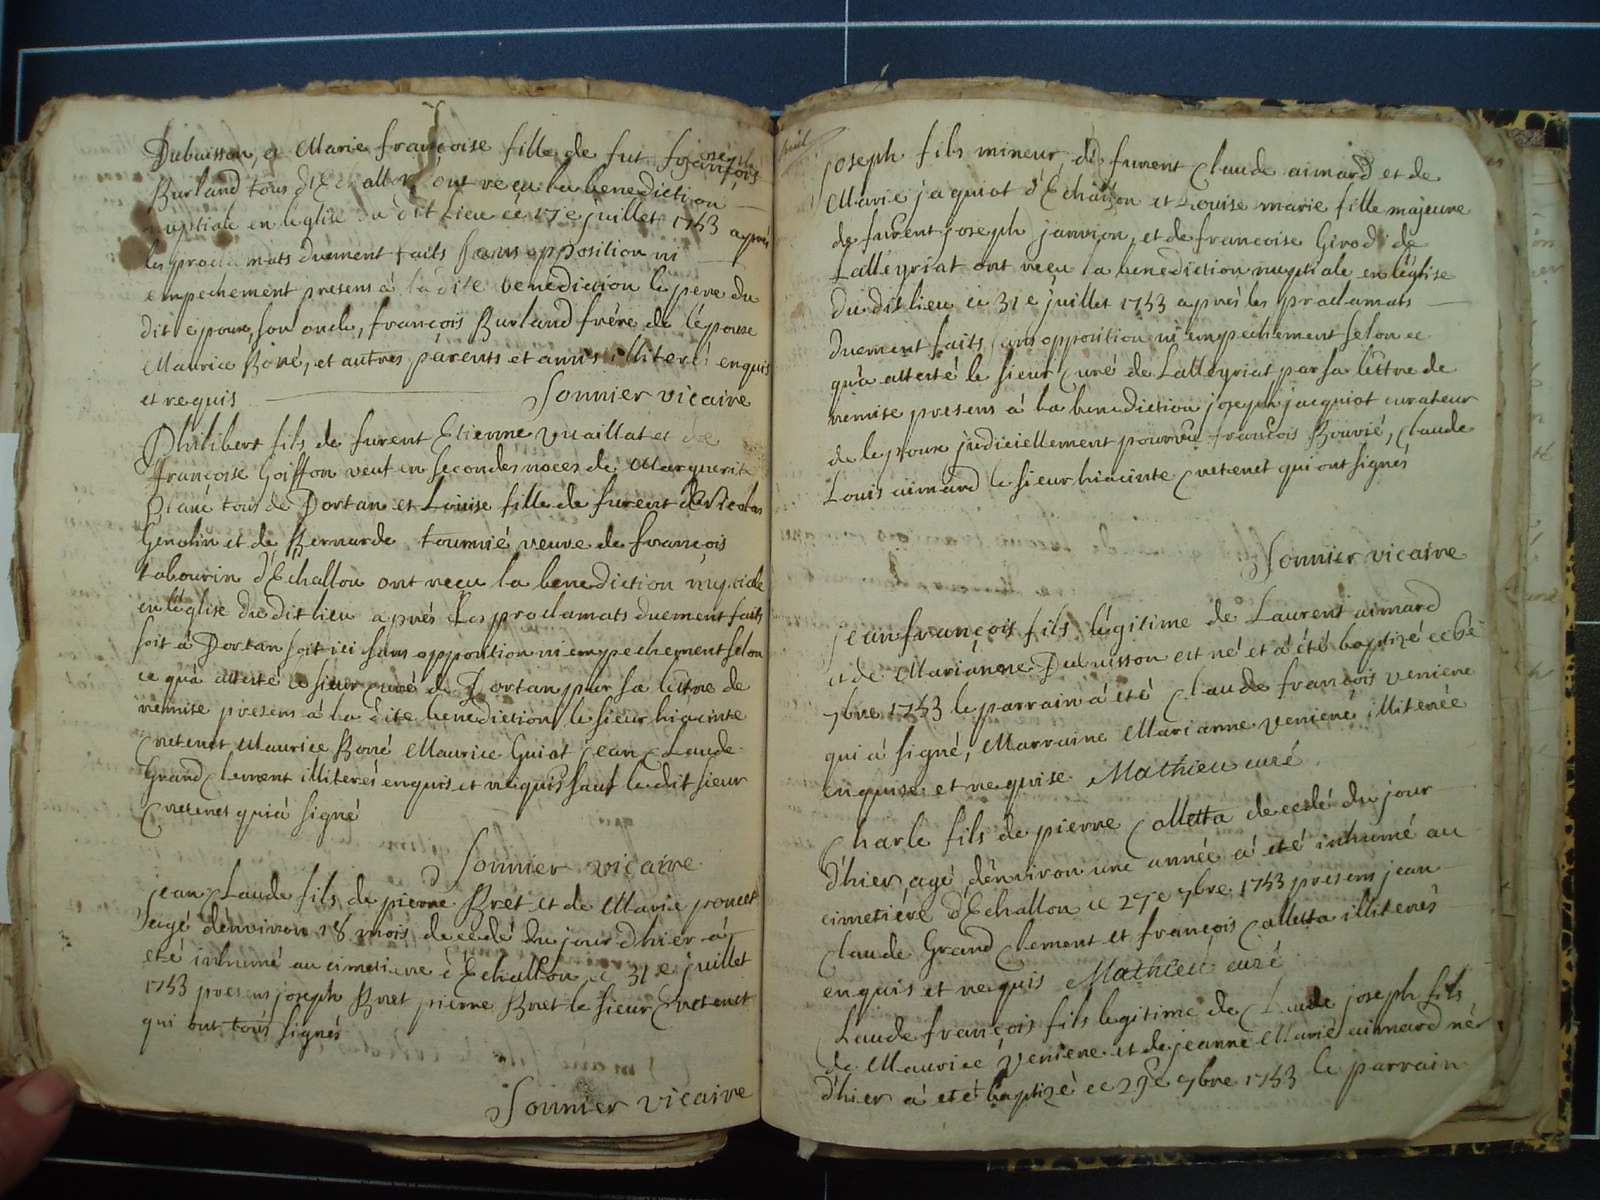 Dubuisson, et Marie françoise fille de fut françois joseph
Burland tous d'Echallon ont reçu la benediction
nuptiale en leglise du dit lieu ce 17e juillet 1753 après
les proclamats duement faits sans opposition ni
empechement presens à la dite benediction le pere du
dit epoux, son oncle, françois Burland frère de l'épouse
Maurice Boré, et autres parents et amis illiterés enquis
et requis Sonnier vicaire
Philibert fils de furent Etienne Vuaillat et de
françoise Goiffon veuf en secondes noces de Marguerite
tous de Dortan et Louise fille de furent Nicolas
Genolin et de Bernarde tournié veuve de françois
tabourin d'Echallon ont reçu la benediction nuptiale
en l'église du dit lieu après les proclamats duement faits
soit à Dortan soit ici sans opposition ni empechement selon
ce qu'a attesté le sieur curé de Dortan par sa lettre de
remise presens à la dite benediction le sieur hiacinte
Cretenet Maurice Boré Maurice Guiot jean Claude
Grand Clement illiterés enquis et requis sauf le dit sieur
Cretenet qui à signé
Sonnier vicaire
jean Claude fils de pierre Bret et de Marie poncet
agé dénviron 18 mois decedé du jour d'hier à
eté inhumé au cimetiere d'Echallon ce 31e juillet
1753 presens joseph Bret pierre Bret le sieur Cretenet
qui ont tous signés
Sonnier vicaire
joseph fils mineur de furent Claude aimard et de
Marie jaquiot d'Echallon et Louise marie fille majeure
de furent joseph janvion, et de francoise Girod de
Lalleyriat ont reçu la benediction nuptiale en léglise
du dit lieu ce 31e juillet 1753 après les proclamats
duement faits sans opposition ni empechement selon ce
qu'a attesté le sieur curé de Lalleyriat par sa lettre de
remise presens à la benediction joseph jacquiot curateur
de lepoux judiciellement pourvu françois Bouvié, Claude
Louis aimard le sieur hiacinte Cretenet qui ont signés
Sonnier vicaire
jean françois fils légitime de Laurent aimard
et de Marianne Dubuisson est né et à été baptizé ce
7bre 1753 le parrain à été Claude françois veniere
qui à signé, Marraine Marianne veniere illiterée
enquise et requise Mathieu curé
Charle fils de pierre Colletta decedé du jour
d'hier, agé dénviron une année à eté inhumé au
cimetière d'Echallon ce 27e 7bre 1753 presens jean
Claude Grand Clement et françois Colletta illiterés
enquis et requis Mathieu curé
Claude françois fils legitime de Claude joseph fils
de Maurice veniere et de jeanne Marie aimard né
d'hier à eté baptizé ce 29e 7bre 1753 le parrain